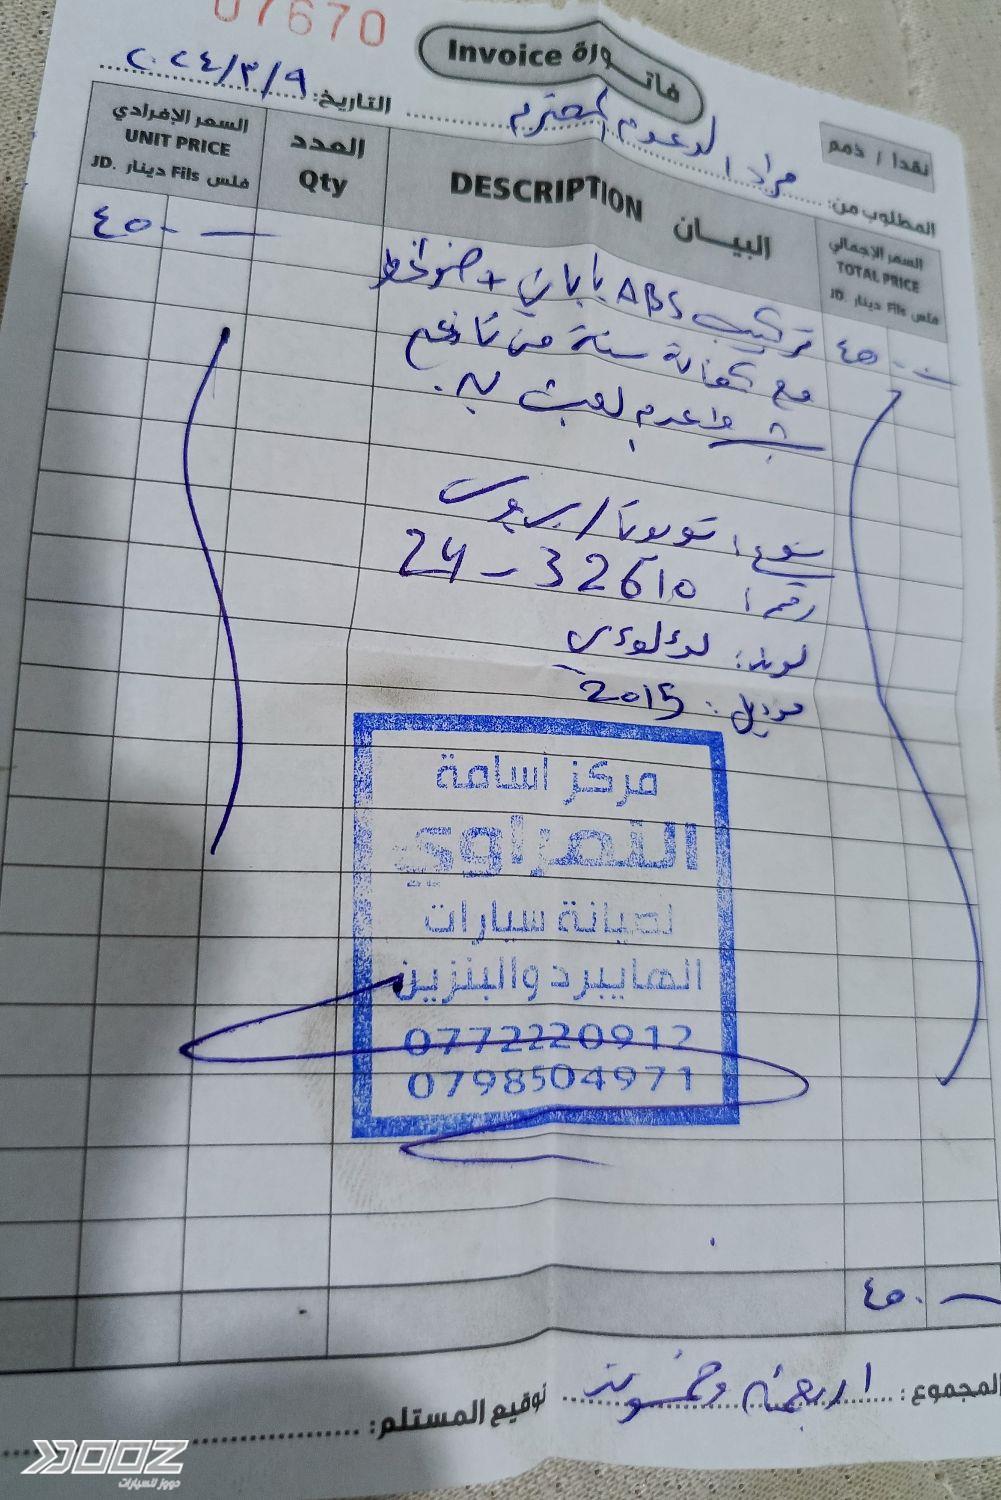 07670
فاتورة Invoice
نقداً / ذمم
التاريخ: ٢٠٢٤/٣/٩
المطلوب من: مراد الدعوم المحترم
السعر الإجمالي
TOTAL PRICE
فلس Fils دينار JD.
البيـــان DESCRIPTION
العدد
Qty
السعر الإفرادي
UNIT PRICE
فلس Fils دينار JD.
٤٥٠ —
تركيب ABS ياباني +
٤٥٠ —
مع كفالة سنة من تاريخه
شرط عدم لعب به.
نوع: تويوتا / بريوس
رقم: 32610 - 24
لونه: لؤلؤي
موديل: 2015
مركز أسامة
النمراوي
لصيانة سيارات
الهايبرد والبنزين
0772220912
0798504971
٤٥٠ —
المجموع: اربعمئة وخمسون
توقيع المستلم:
DOOZ
دووز للسيارات